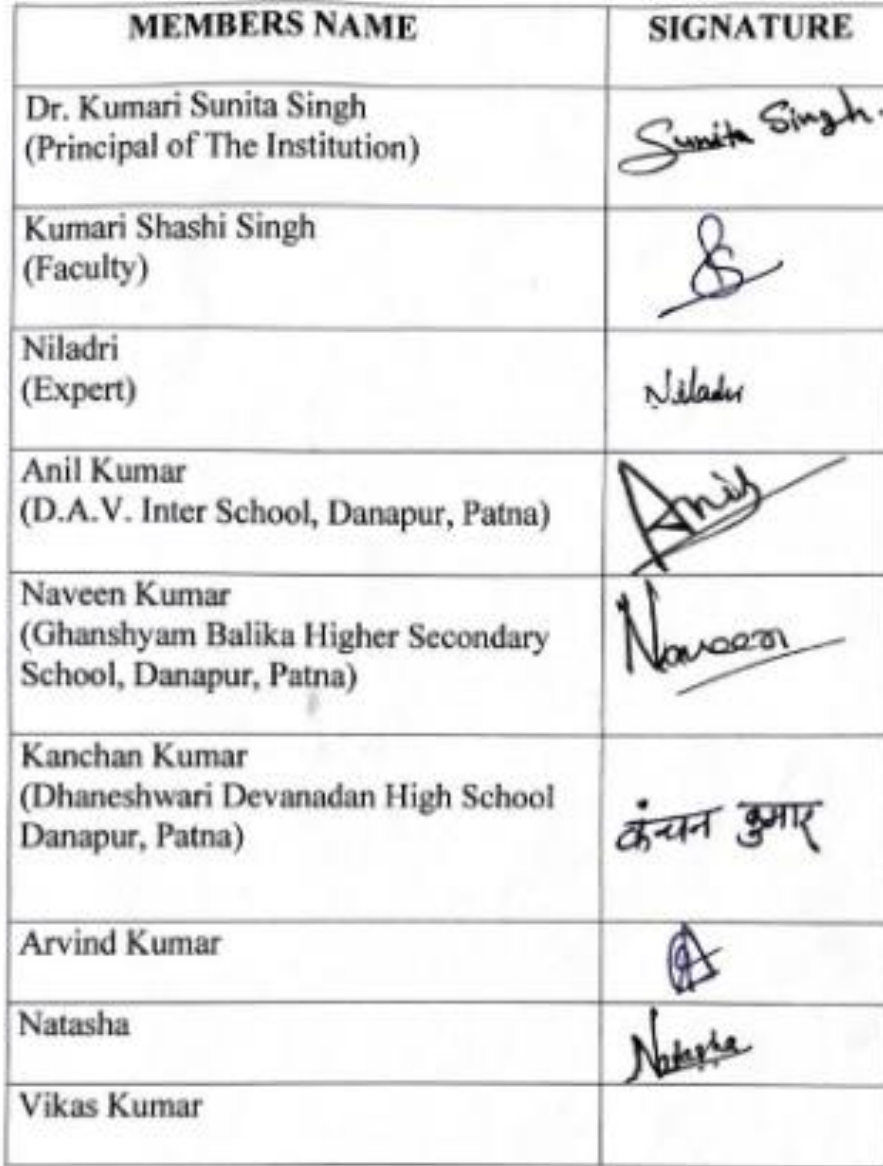 MEMBERS NAME SIGNATURE
Dr. Kumari Sunita Singh
(Principal of The Institution)
Sunita Singh.
Kumari Shashi Singh
(Faculty)
Niladri
(Expert)
Niladri
Anil Kumar
(D.A.V. Inter School, Danapur, Patna)
Anil
Naveen Kumar
(Ghanshyam Balika Higher Secondary
School, Danapur, Patna)
Naveen
Kanchan Kumar
(Dhaneshwari Devanadan High School
Danapur, Patna)
कंचन कुमार
Arvind Kumar
Natasha
Natasha
Vikas Kumar